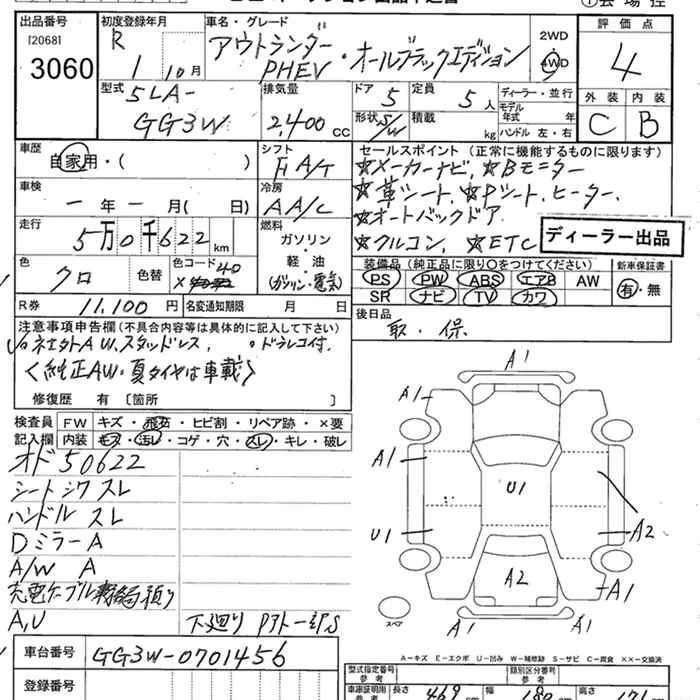 出品番号
[2068]
3060
初度登録年月
R
1 10月
車名・グレード
アウトランダー
PHEV・オールブラックエディション
2WD
4WD
評価点
4
型式
5LA-
GG3W
排気量
2,400 CC
ドア
5
定員
5人
形状 S/W
積載 kg
ディーラー・並行
モデル
年式 年
ハンドル 左・右
外装 内装
C B
車歴
自家用・( )
シフト
FI A/T
セールスポイント (正常に機能するものに限ります)
☆メーカーナビ、☆Bモニター
☆革シート、☆Pシート、ヒーター、
☆オートバックドア
☆クルコン、☆ETC
ディーラー出品
車検
ー年ー月(日)
冷房
AA/C
走行
5万0千622km
燃料
ガソリン
・
軽油
(ガソリン・電気)
色
クロ
色替
色コード 40
X
装備品 (純正品に限り○をつけてください)
PS PW ABS エアB AW
SR ナビ TV カワ
新車保証書
有・無
R券 11,100円
名変通知期限 月 日
後日品
取・保
注意事項申告欄 (不具合内容等は具体的に記入して下さい)
社外AW、スタッドレス、 ◦ドラレコ付、
〈純正AW・夏タイヤは車載〉
修復歴 有〔箇所 〕
検査員
記入欄
FW キズ・飛石・ヒビ割・リペア跡・×要
内装 キズ・汚レ・コゲ・穴・スレ・キレ・破レ
オド50622
シートシワスレ
ハンドルスレ
DミラーA
A/W A
充電ケーブル 預り
A,U
下廻りアト一部S
A1
A1
A1
U1
U1
A2
A2
A1
A1
A1
スペア
A-キズ E-エクボ U-凹み W-補修跡 S-サビ C-腐食 ××-交換済
車台番号
GG3W-0701456
登録番号
型式指定番号
参考
類別区分番号
参考
車庫証明用
参考
長さ 469 cm
幅 180 cm
高さ 171